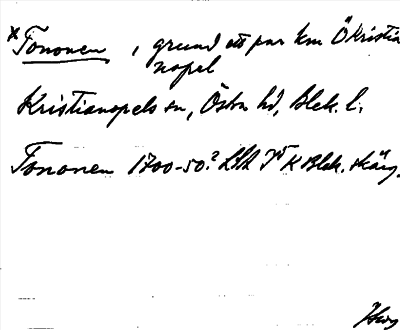 *Tononen, grund ett par km Ö Kristia
nopel
Kristianopels sn, Östra hd, Blek. l.
Tononen 1700-50? LSA K Blek. skärg.